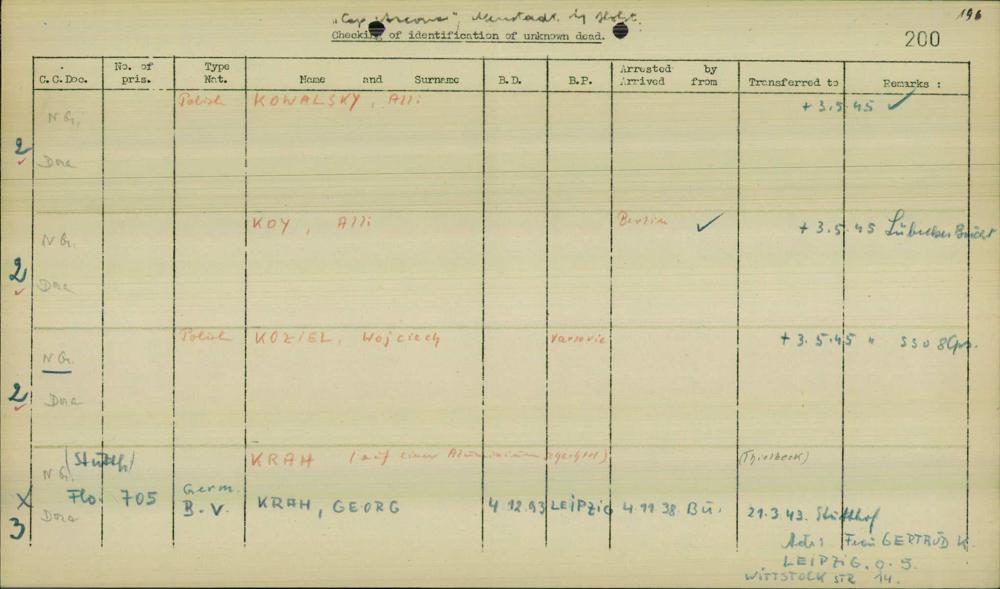 "Cap Arcona", Neustadt. i/ Holst. 196
Checking of identification of unknown dead.
200
C.C.Doc. No. of pris. Type Nat. Name and Surname B.D. B.P. Arrested by Arrived from Transferred to Remarks :
Polish KOWALSKY, Alli + 3.5.45 ✓
N G.
2 Dora
KOY, Alli Berlin ✓ + 3.5.45 Lübecker Bucht
N G.
2 Dora
Polish KOZIEL, Wojciech Varsovie + 3.5.45 "
N G.
2 Dora
KRAH (auf einer Aluminium (Thielbeck)
N G. (Stutth)
X Flo. 705 Germ. B.V. KRAH, GEORG 4.12.93 LEIPZIG 4.11.38 Bu. 21.3.43. Stutthof
3 Dora
Frau GERTRUD K.
LEIPZIG. O. 5.
WITTSTOCK STR 14.